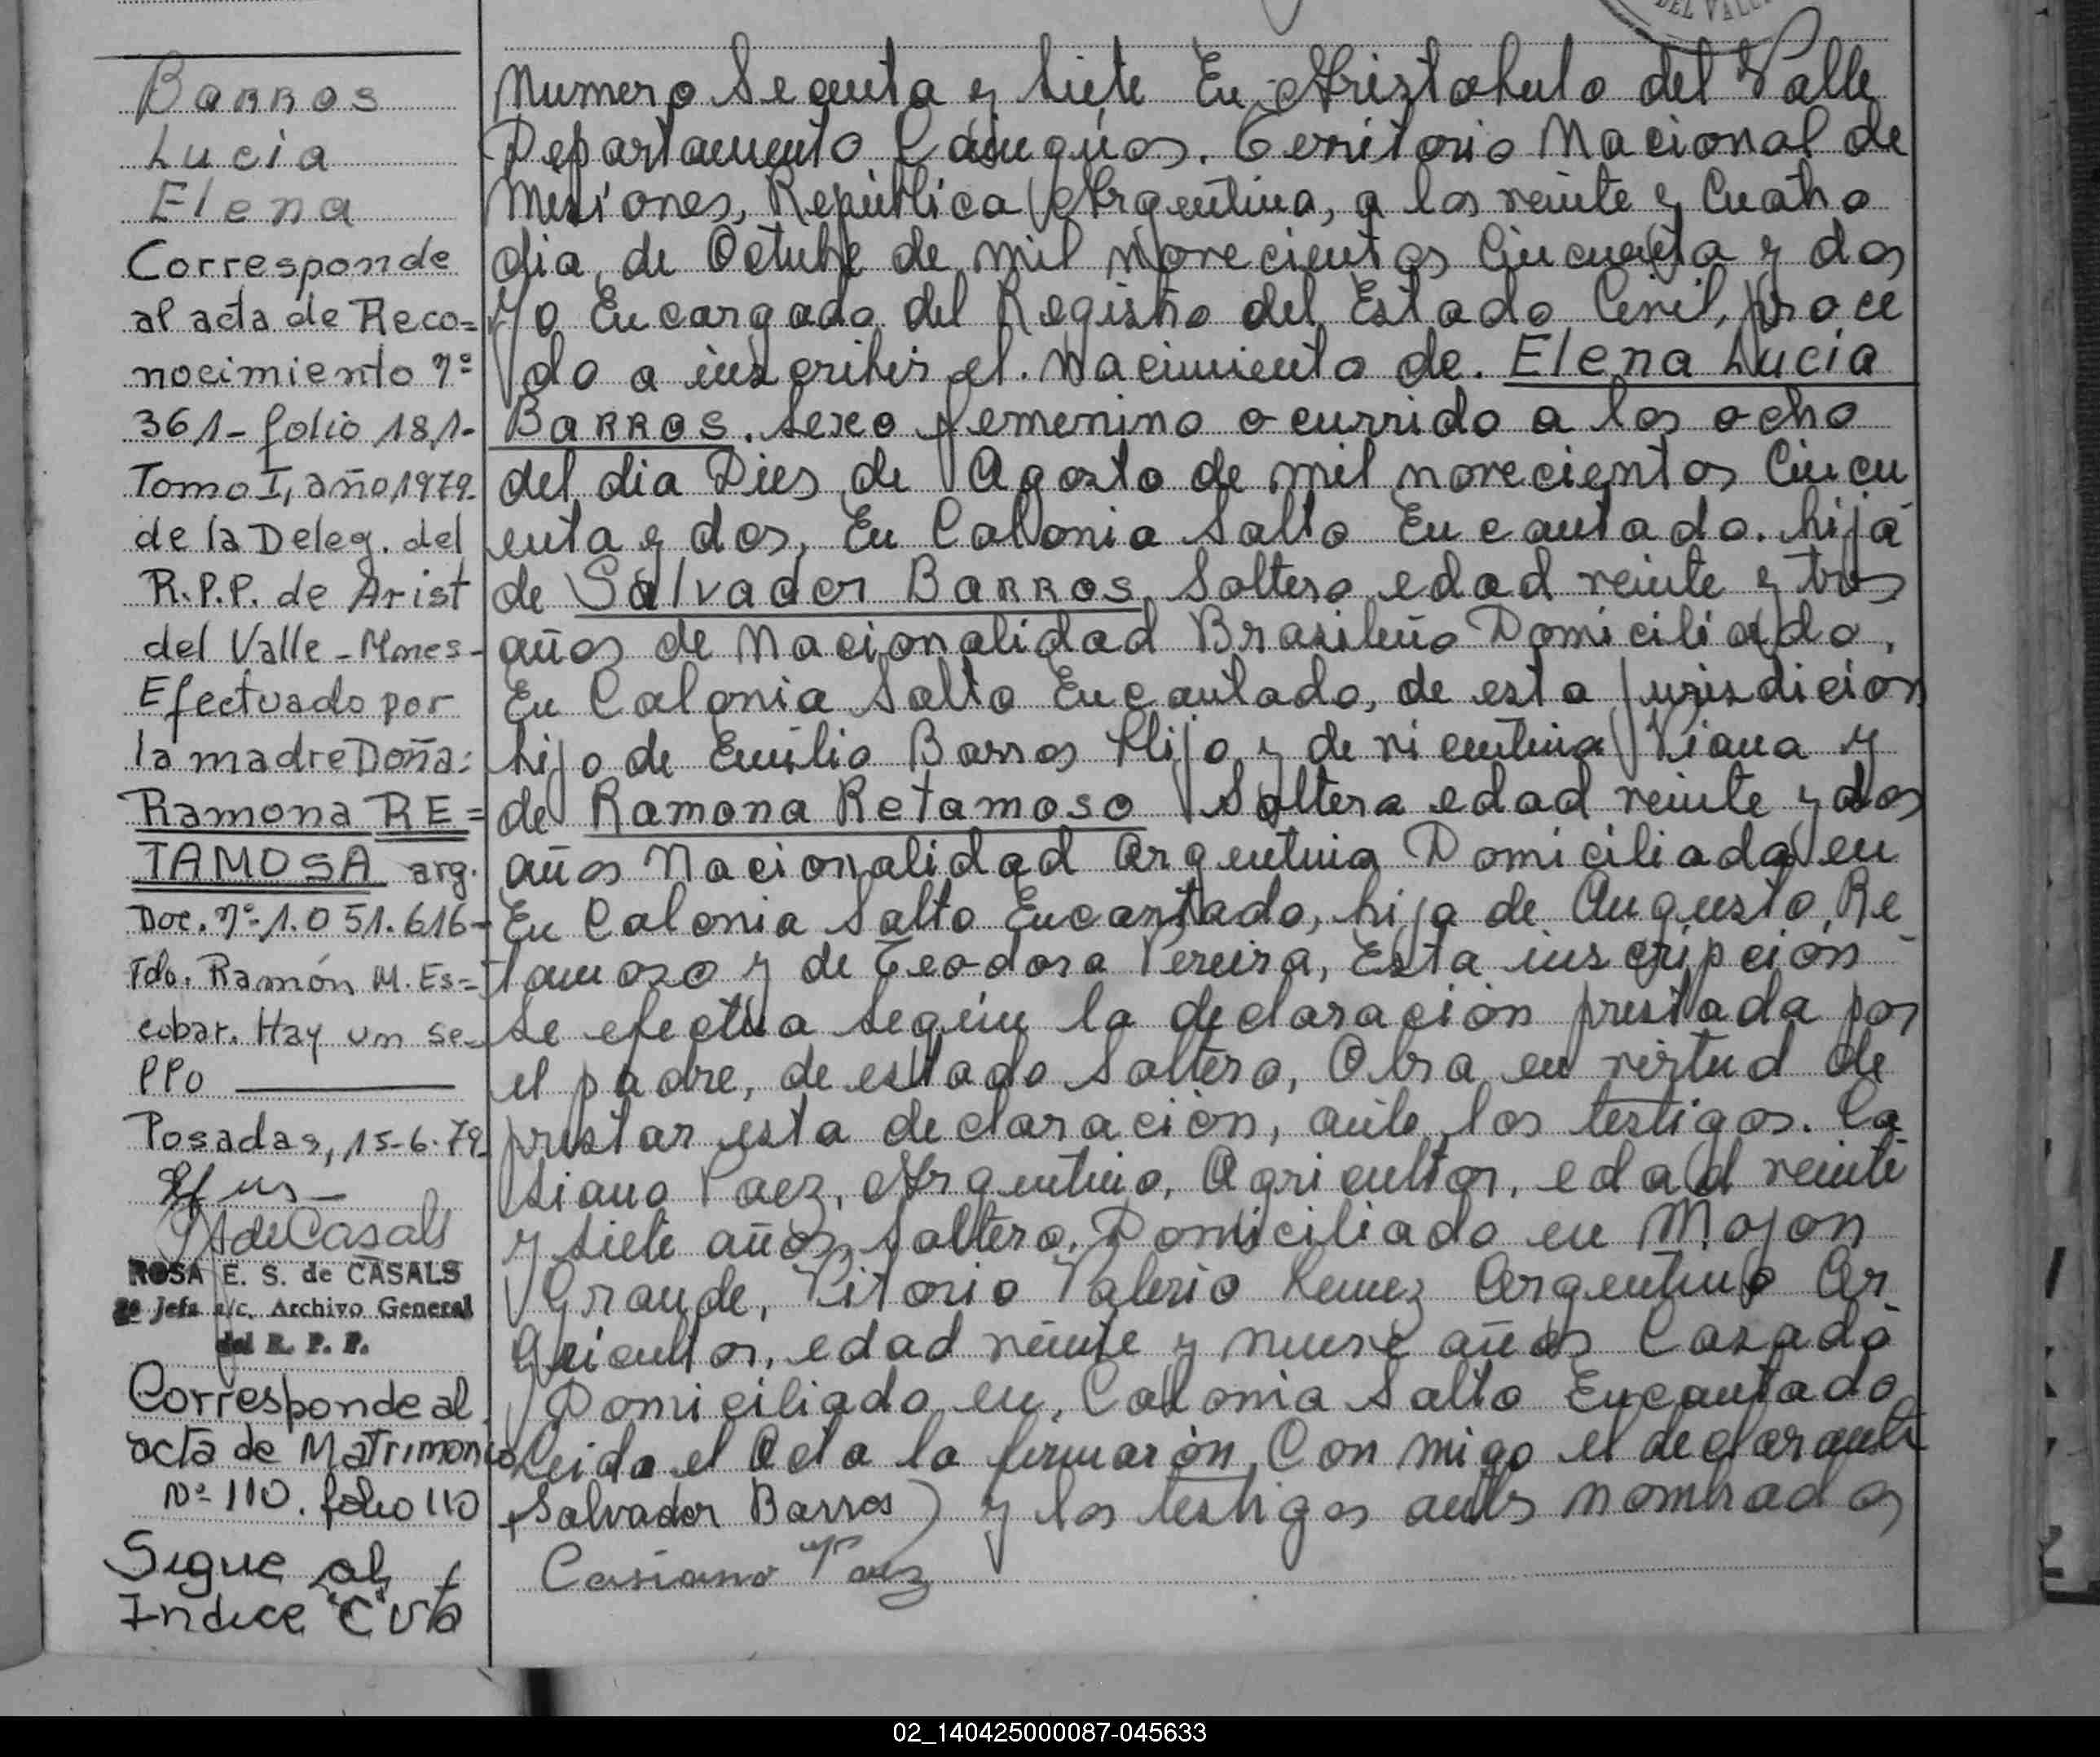 DEL VALLE
Barros
Lucia
Elena
Corresponde
al acta de Reco=
nocimiento nº
361- folio 181-
Tomo I, año 1979-
de la Deleg. del
R.P.P. de Arist
del Valle - Mnes-
Efectuado por
la madre Doña:
Ramona RE=
TAMOSA arg.
Doc. nº 1.051.616-
Fdo. Ramón M. Es=
cobar. Hay un se-
llo
Posadas, 15-6-79-
de Casals
ROSA E. S. de CASALS
2º Jefa a/c. Archivo General
del R. P. P.
Corresponde al
acta de Matrimonio
Nº 110. folio 110
Sigue al
Indice "C"
Numero Secenta y Siete En Aristobulo del Valle
Departamento Cainguas. Territorio Nacional de
Misiones, República Argentina, a los veinte y Cuatro
dia, de Octubre de mil Novecientos Cincuenta y dos
Yo Encargado del Registro del Estado Civil, proce
do a inscribir el. Nacimiento de. Elena Lucia
Barros. Sexo femenino ocurrido a los ocho
del dia Dies de Agosto de mil novecientos Cincu
enta y dos, En Colonia Salto Encantado. hija
de Salvador Barros Soltero edad veinte y tres
años de Nacionalidad Brasileño Domiciliado,
En Colonia Salto Encantado, de esta jurisdicion
hijo de Emilio Barros Hijo y de Viana y
de Ramona Retamoso Soltera edad veinte y dos
años Nacionalidad Argentina Domiciliada en
En Colonia Salto Encantado, hija de Augusto Re
tamoso y de Teodora Pereira, Esta inscripción
se efectua según la declaración prestada por
el padre, de estado Soltero, Obra en virtud de
prestar esta declaración, ante los testigos. Ca
siano Paez, Argentino, Agricultor, edad veinte
y siete años, Soltero, Domiciliado en Mojon
Grande, Vitorio Valerio Argentino Ar
gricultor, edad veinte y nueve años Casado
Domiciliado en, Colonia Salto Encantado
Leida el Acta la firmarón Con migo el declarante
Salvador Barros) y los testigos antes nombrados
Casiano Paez
02_140425000087-045633